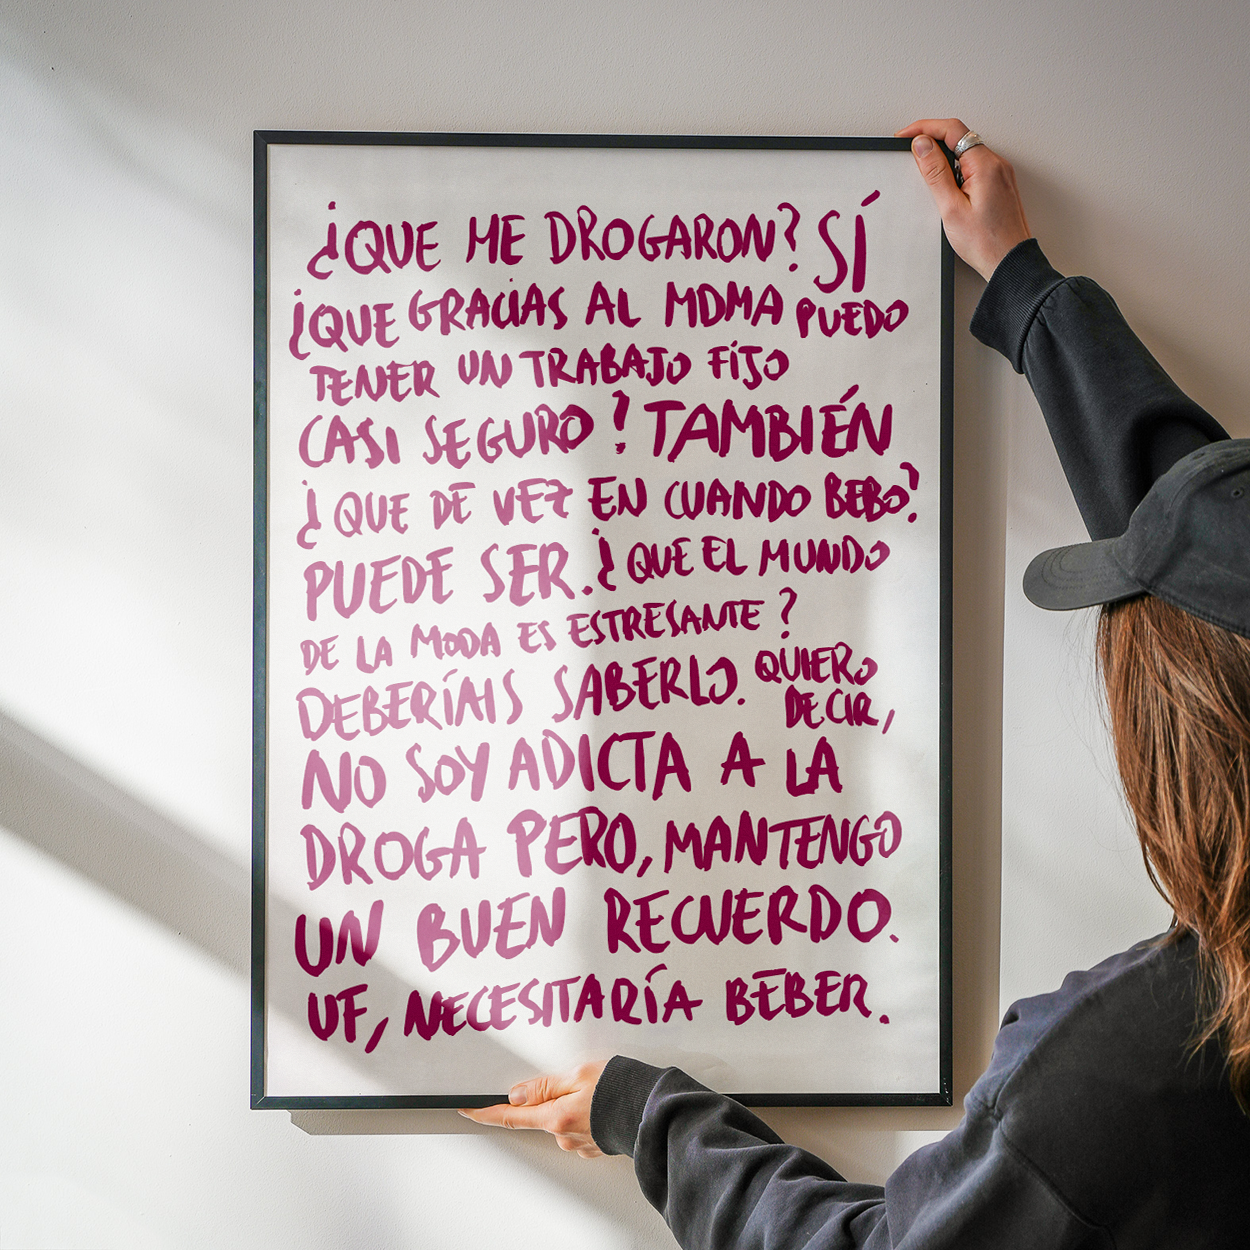 ¿QUE ME DROGARON? SÍ
¿QUE GRACIAS AL MDMA PUEDO
TENER UN TRABAJO FIJO
CASI SEGURO? TAMBIÉN
¿QUE DE VEZ EN CUANDO BEBO?
PUEDE SER. ¿QUE EL MUNDO
DE LA MODA ES ESTRESANTE?
DEBERÍAIS SABERLO. QUIERO
DECIR,
NO SOY ADICTA A LA
DROGA PERO, MANTENGO
UN BUEN RECUERDO.
UF, NECESITARÍA BEBER.